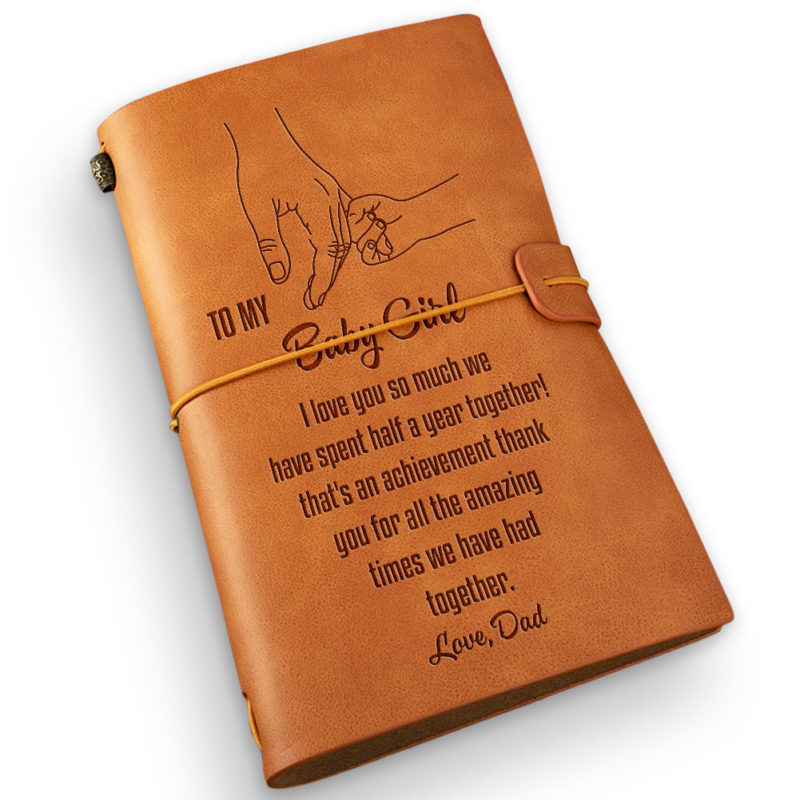 TO MY
Baby Girl
I love you so much we
have spent half a year together!
that's an achievement thank
you for all the amazing
times we have had
together.
Love, Dad